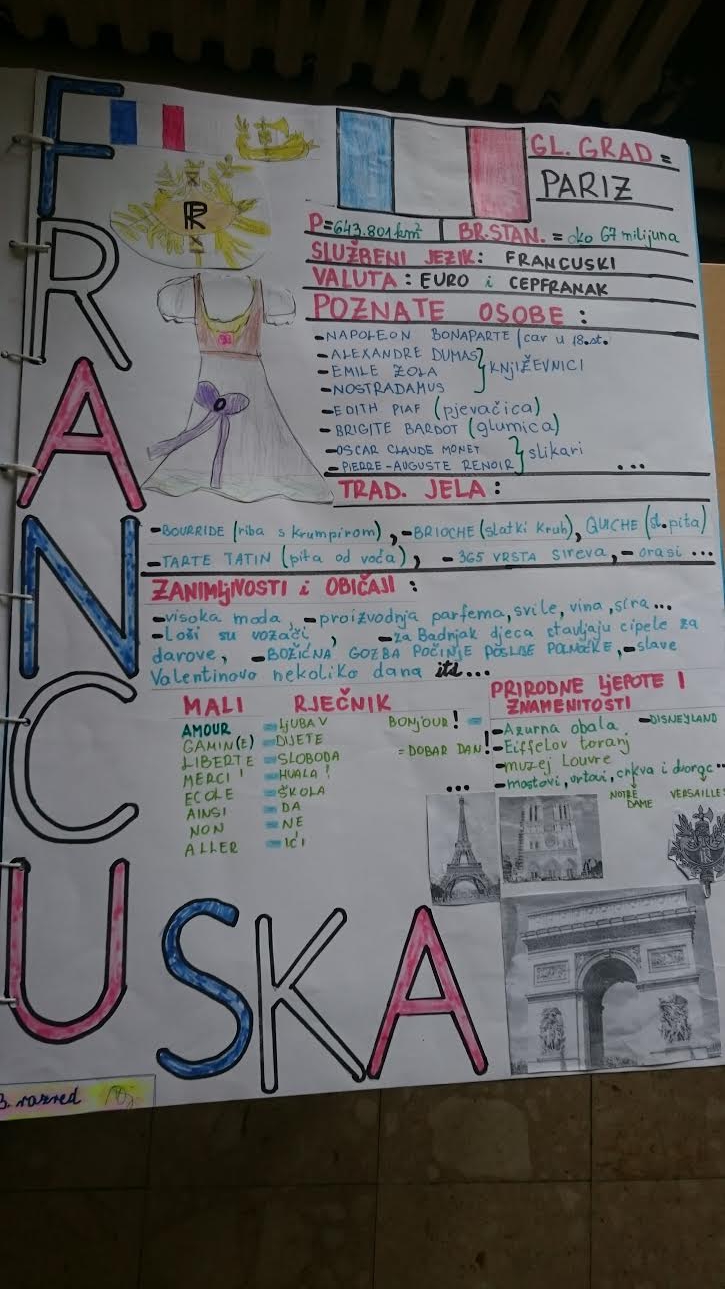 FRANCUSKA
RF
GL. GRAD =
PARIZ
P=643.801 km² | BR.STAN. = oko 67 milijuna
SLUŽBENI JEZIK: FRANCUSKI
VALUTA : EURO i CFPFRANAK
POZNATE OSOBE :
-NAPOLEON BONAPARTE (car u 18.st.
-ALEXANDRE DUMAS
-EMILE ZOLA } KNJIŽEVNICI
-NOSTRADAMUS
-EDITH PIAF (pjevačica)
-BRIGITE BARDOT (glumica)
-OSCAR CLAUDE MONET } slikari
-PIERRE-AUGUSTE RENOIR ...
TRAD. JELA :
-BOURRIDE (riba s krumpirom), -BRIOCHE (slatki kruh), QUICHE (sl.pita)
-TARTE TATIN (pita od voća), -365 VRSTA sireva, -orasi ...
ZANIMLJIVOSTI i OBIČAJI :
-visoka moda, -proizvodnja parfema, svile, vina, sira...
-Loši su vozači, -za Badnjak djeca stavljaju cipele za
darove, -BOŽIĆNA GOZBA POČINJE POSLIJE PONOĆKE, -slave
Valentinovo nekoliko dana itd...
MALI RJEČNIK
AMOUR = LJUBAV
GAMIN(E) = DIJETE
LIBERTE = SLOBODA
MERCI ! = HVALA !
ECOLE = ŠKOLA
AINSI = DA
NON = NE
ALLER = IĆI
BONJOUR! =
= DOBAR DAN!
...
PRIRODNE LJEPOTE I
ZNAMENITOSTI
-Azurna obala -DISNEYLAND
-Eiffelov toranj
-muzej Louvre
-mostovi, vrtovi, crkva i dvorac...
NOTRE DAME
VERSAILLES
3. razred